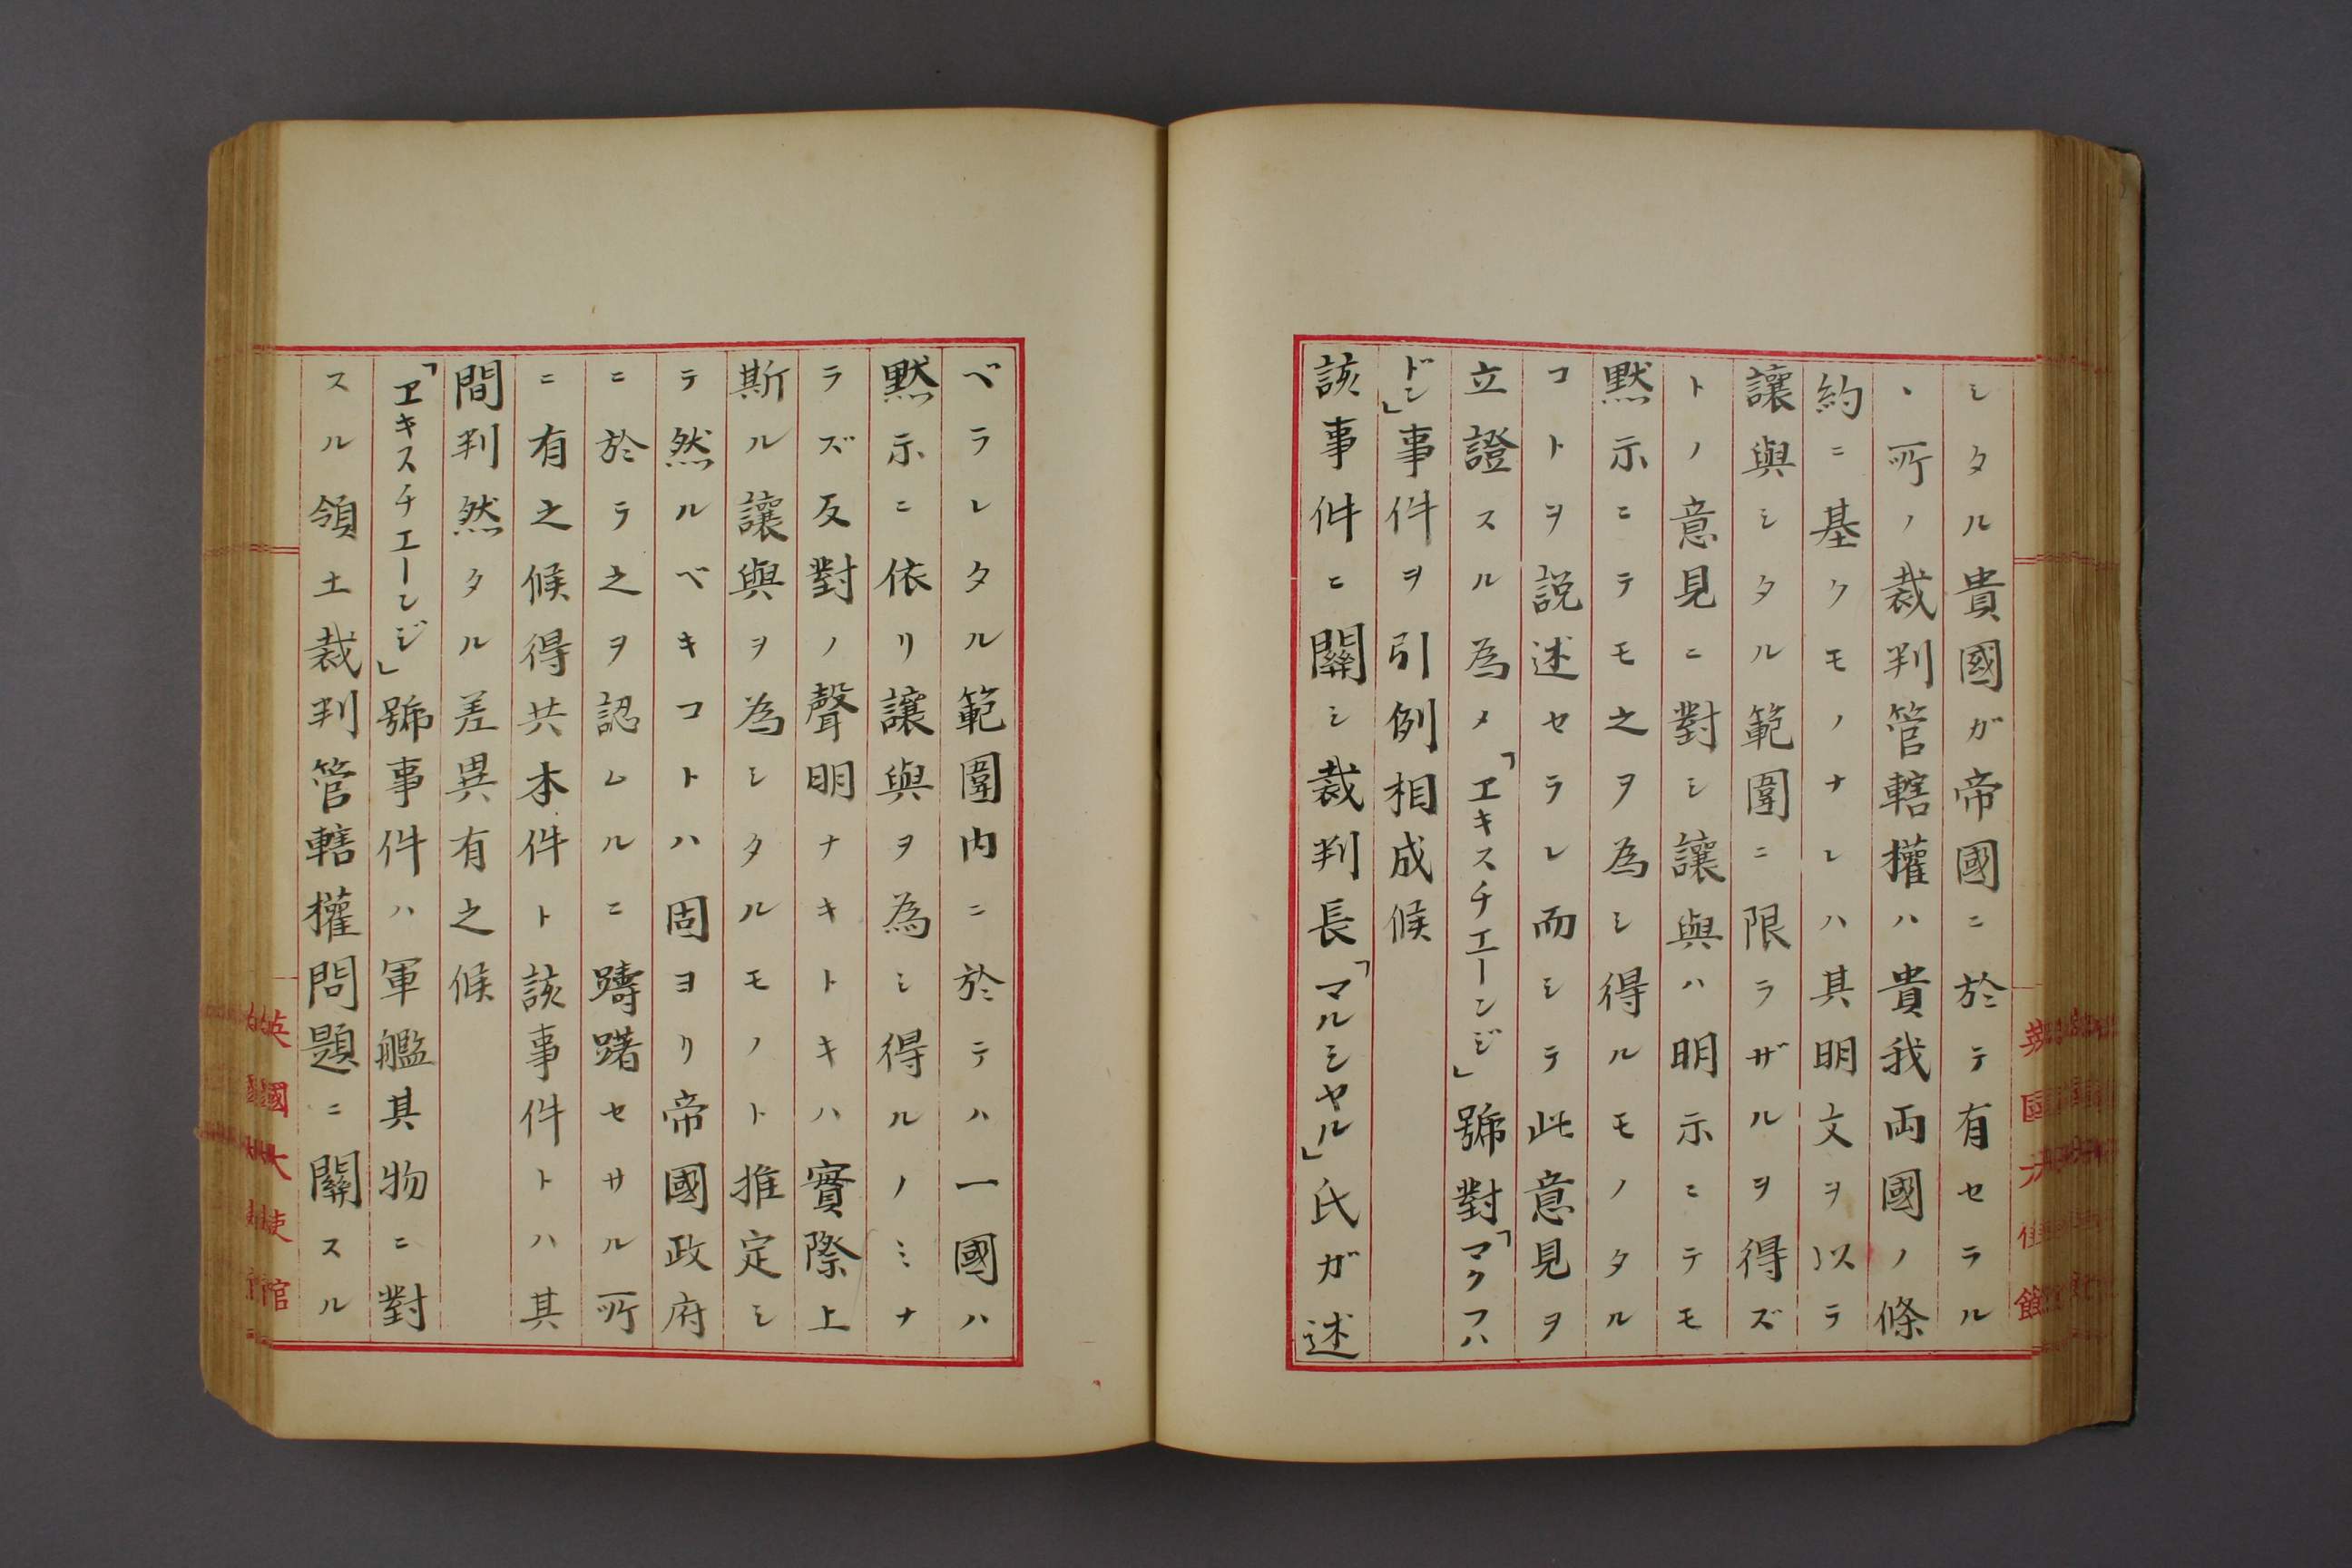 シタル貴國ガ帝國ニ於テ有セラル
ヽ所ノ裁判管轄權ハ貴我両國ノ條
約ニ基クモノナレハ其明文ヲ以テ
讓與シタル範圍ニ限ラザルヲ得ズ
トノ意見ニ對シ讓與ハ明示ニテモ
黙示ニテモ之ヲ為シ得ルモノタル
コトヲ説述セラレ而シテ此意見ヲ
立證スル為メ「エキスチエーンジ」號對「マクフハ
ドン」事件ヲ引例相成候
該事件ニ關シ裁判長「マルシヤル」氏ガ述
ベラレタル範圍内ニ於テハ一國ハ
黙示ニ依リ讓與ヲ為シ得ルノミナ
ラズ反對ノ聲明ナキトキハ實際上
斯ル讓與ヲ為シタルモノト推定シ
テ然ルベキコトハ固ヨリ帝國政府
ニ於テ之ヲ認ムルニ躊躇セサル所
ニ有之候得共本件ト該事件トハ其
間判然タル差異有之候
「エキスチエーンジ」號事件ハ軍艦其物ニ對
スル領土裁判管轄權問題ニ關スル
英國大使館